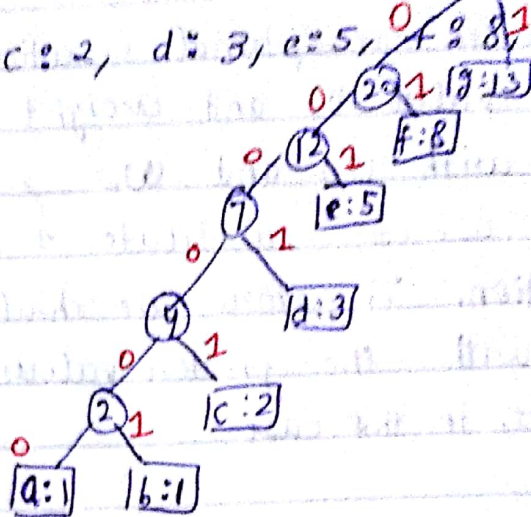 0 1
c: 2, d: 3, e: 5, f: 8,
0 20 1 g:13
0 12 1 f:8
0 7 1 e:5
0 4 1 d:3
0 2 1 c:2
a:1 b:1